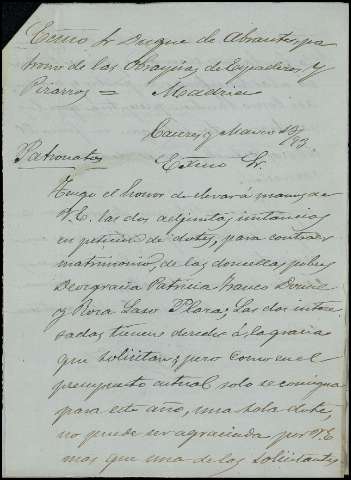 Excmo Sr Duque de Abrantes, pa
trono de las Obras pias de Espaderos y
Pizarros = Madrid
Caceres y Marzo 19/83.
Patronatos
Excmo Sr.
Tengo el honor de elevar á manos de
V.E. las dos adjuntas instancias
en peticion de dotes, para contraer
matrimonio, de las doncellas pobres
Deogracia Patricia Franco
y Rosa Laso Plara; Las dos intere-
sadas tienen derecho á la gracia
que solicitan; pero como en el
presupuesto actual solo se consigna
para este año, una sola dote,
no puede ser agraciada por V.E
mas que una de las solicitantes